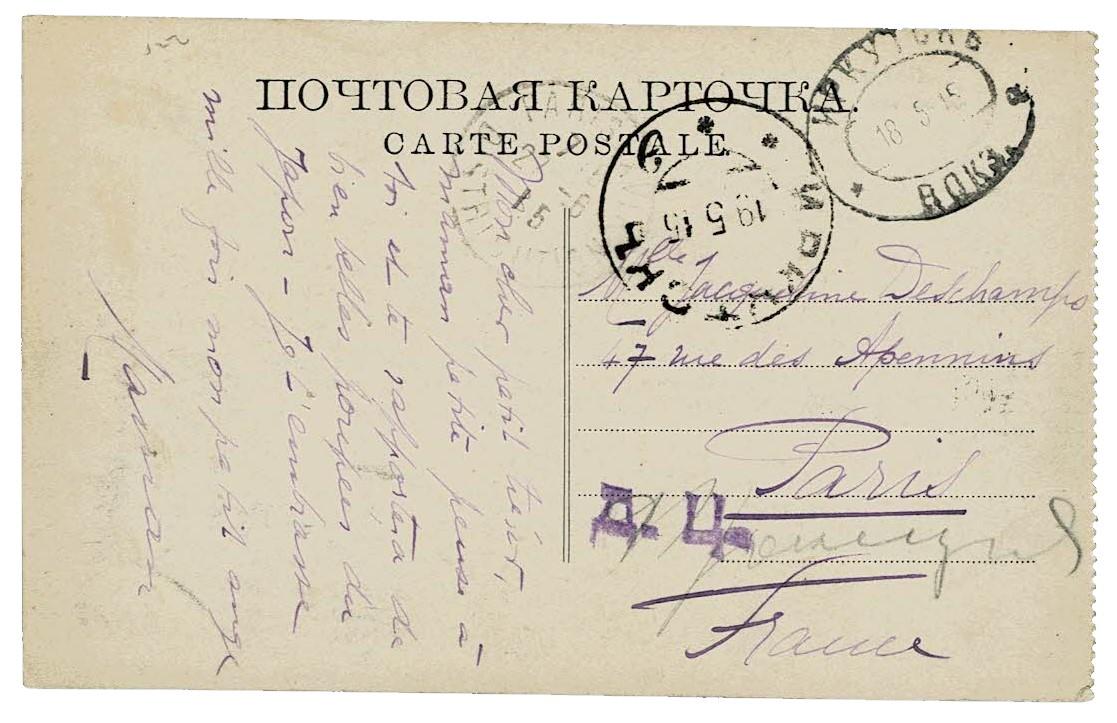 ПОЧТОВАЯ КАРТОЧКА.
CARTE POSTALE
ИРКУТСКЪ
18 5 15
ВОКЗ.
ИРКУТСКЪ
19 5 15
Mon cher petit
maman petite pense à
toi et te rapportera de
bien belles poupées du
Japon - Je t'embrasse
mille fois mon petit ange
Maman
Mlle Jacqueline Deschamps
47 rue des Apennins
Paris
Д. Ц.
France